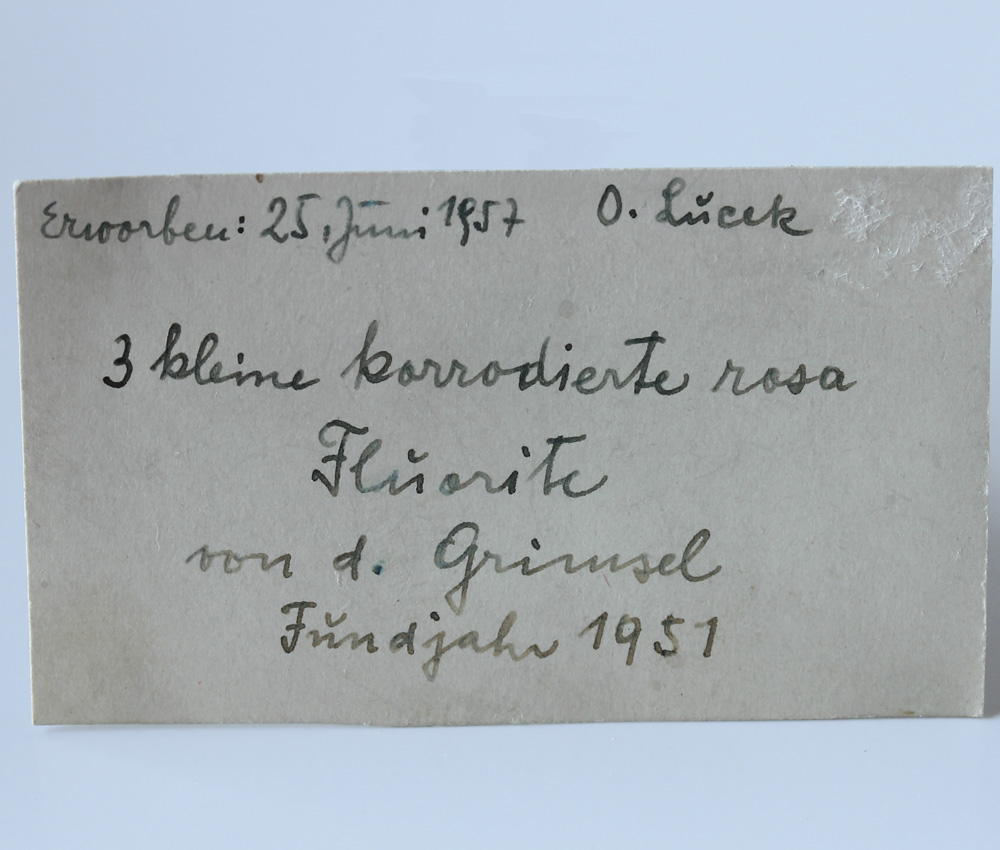 Erworben: 25. Juni 1957 O. Lucek
3 kleine korrodierte rosa
Fluorite
von d. Grimsel
Fundjahr 1951